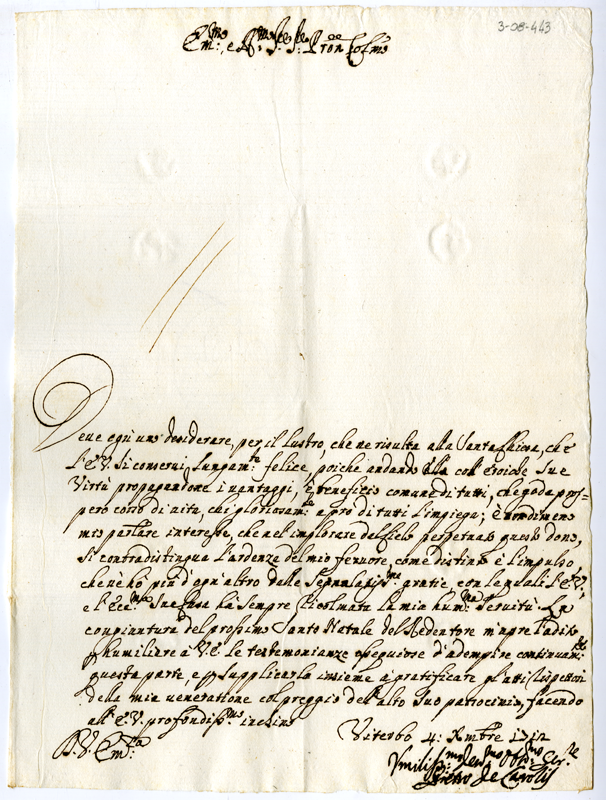 3-08-443
Em:mo e R:mo S:re S:re Pron Col:mo
Deue ogn'uno desiderare, per il lustro, che ne risulta alla Santa Chiesa, che
l'E.V. si conserui lungam:te felice, poiche andando Ella con eroiche sue
Virtù propagandone i uantaggi, è beneficio comune di tutti, che goda pros=
pero corso di uita, che gloriosam:te a prò di tutti l'impiega; è nondimeno
mio parlare interesse, che nel implorare dal Cielo perpetuato questo dono,
si contradistingua l'ardenza del mio feruore, come distinto è l'impulso,
che nè hò più d'ogn'altro dalle segnalatiss:me gratie, con le quali l'E.V.,
e l'Ecc:ma sua Casa hà sempre ricolmata la mia hum:ma seruitù. La
congiuntura del prossimo Santo Natale del Redentore m'apre l'adito
p humiliare a V.E. le testimonianze ossequiose d'adempire continuam:te
questa parte, e p supplicarla insieme à gratificare gl'atti rispettosi
della mia ueneratione col preggio dell'alto suo patrocinio, facendo
all'E.V. profondiss:mo inchino
Viterbo 4: Xmbre 1712
D. V. Em:za
Vmiliss:mo Deu:mo Obl:mo Ser:re
Pietro de Carolis